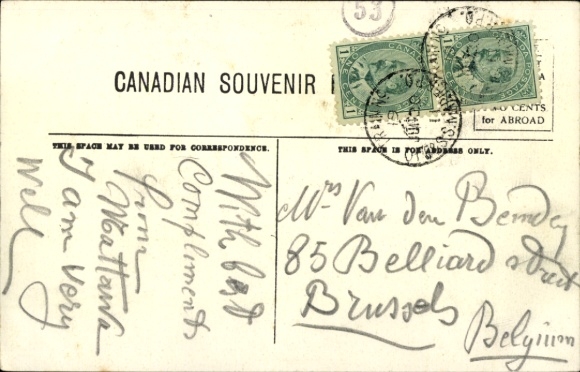 53
CANADIAN SOUVENIR
CENTS
for ABROAD
THIS SPACE MAY BE USED FOR CORRESPONDENCE.
THIS SPACE IS FOR ADDRESS ONLY.
With best
Compliments
from
Mattawa
I am very
Well
Mrs Van den Bemden
85 Belliard street
Brussels
Belgium